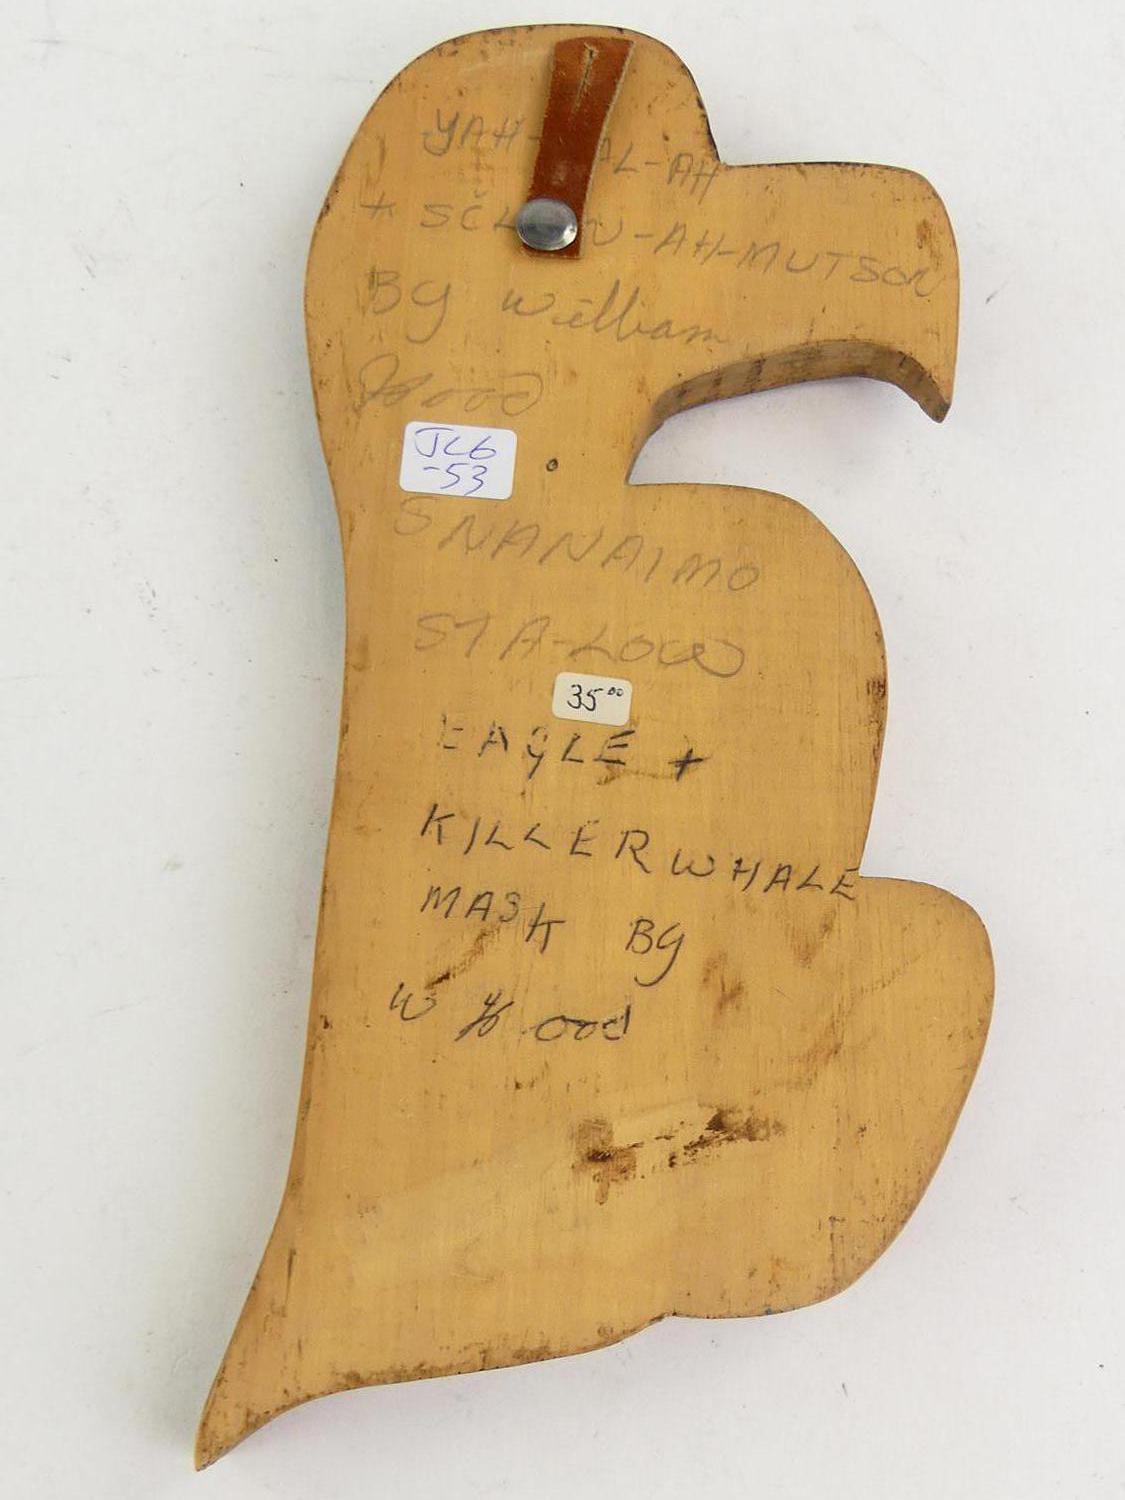 YAH- AL-AH
+ SČL W-AH-MUTSON
By William
Good
JLG
-53
SNANAIMO
STA-LOW
35⁰⁰
EAGLE +
KILLERWHALE
MASK By
W Good